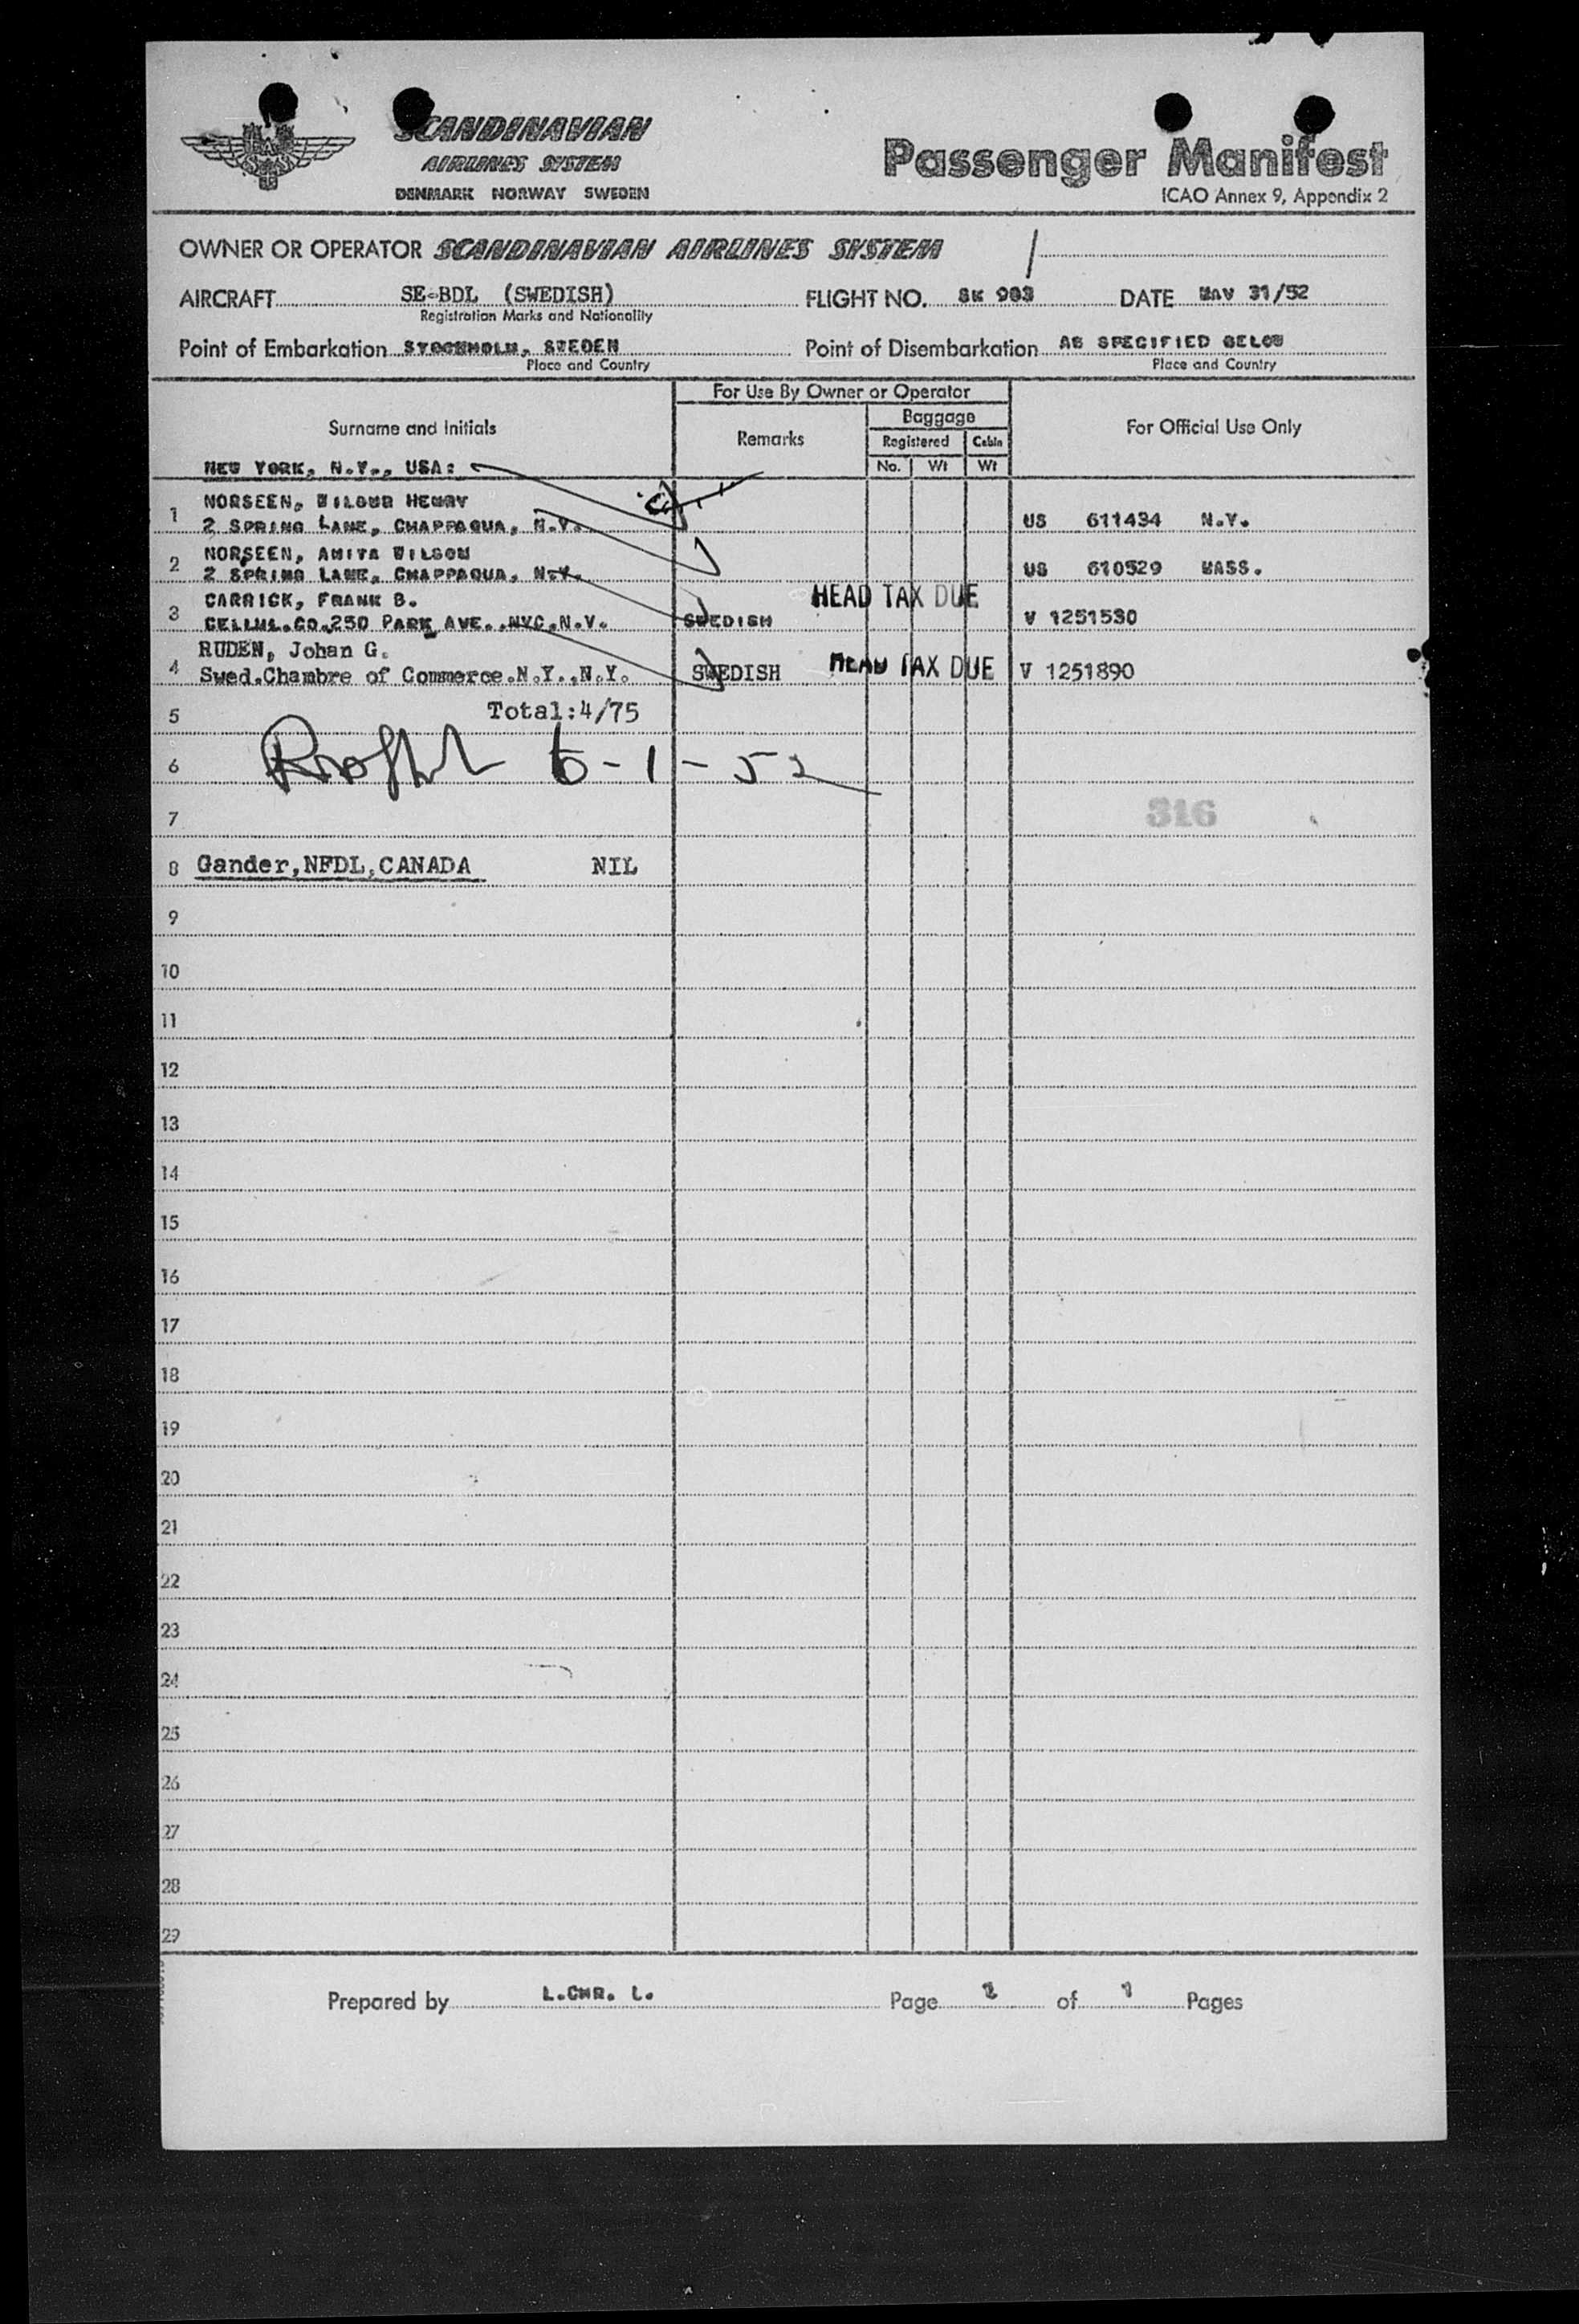 SCANDINAVIAN
AIRLINES SYSTEM
DENMARK NORWAY SWEDEN
Passenger Manifest
ICAO Annex 9, Appendix 2
OWNER OR OPERATOR SCANDINAVIAN AIRLINES SYSTEM
AIRCRAFT SE-BDL (SWEDISH) FLIGHT NO. SK 903 DATE MAY 31/52
Registration Marks and Nationality
Point of Embarkation STOCKHOLM, SWEDEN Point of Disembarkation AS SPECIFIED BELOW
Place and Country Place and Country
For Use By Owner or Operator
Surname and Initials Remarks Baggage For Official Use Only
Registered Cabin
No. Wt Wt
NEW YORK, N.Y., USA:
1 NORSEEN, WILBUR HENRY
2 SPRING LANE, CHAPPAQUA, N.Y. US 611434 N.Y.
2 NORSEEN, ANITA WILSON
2 SPRING LANE, CHAPPAQUA, N.Y. US 610529 MASS.
3 CARRICK, FRANK B. HEAD TAX DUE
CELLUL.CO.250 PARK AVE.,NYC.N.Y. SWEDISH V 1251530
4 RUDEN, Johan G.
Swed.Chambre of Commerce.N.Y.,N.Y. SWEDISH HEAD TAX DUE V 1251890
5 Total:4/75
6 6-1-52
7 316
8 Gander,NFDL,CANADA NIL
9
10
11
12
13
14
15
16
17
18
19
20
21
22
23
24
25
26
27
28
29
Prepared by L.CHR. L. Page 1 of 1 Pages